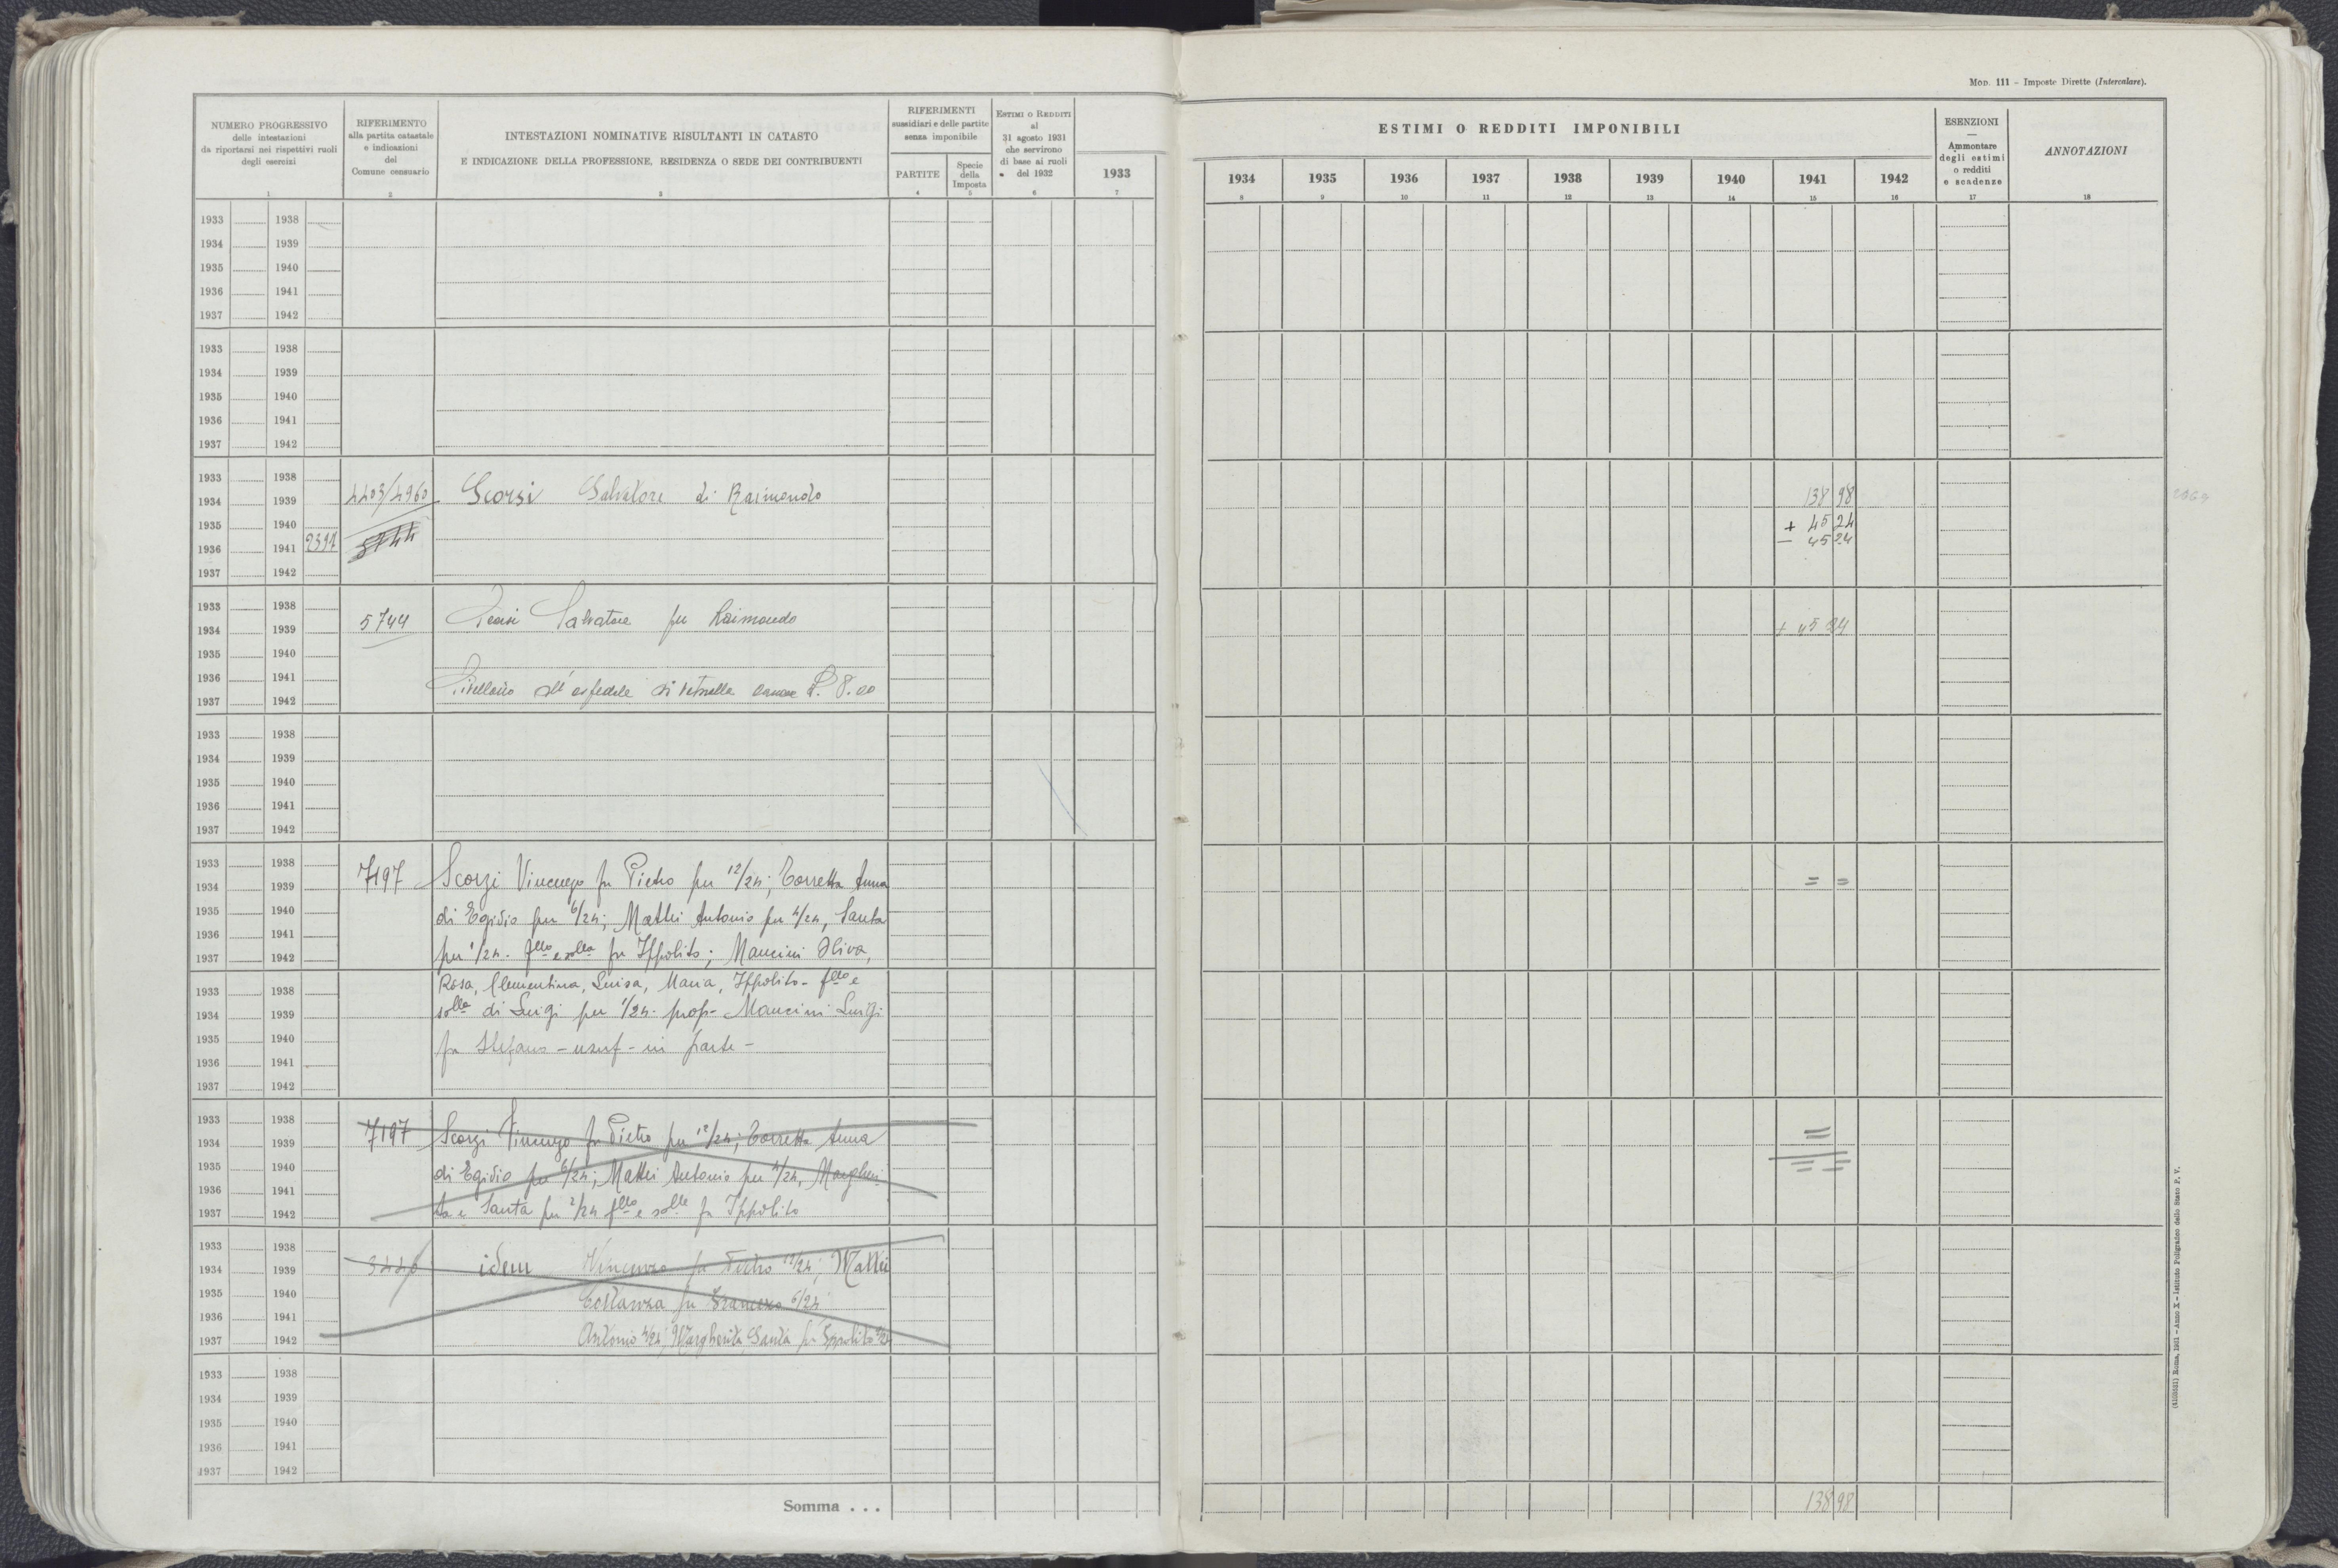 MOD. 111 - Imposte Dirette (Intercalare).
NUMERO PROGRESSIVO
delle intestazioni
da riportarsi nei rispettivi ruoli
degli esercizi
1
RIFERIMENTO
alla partita catastale
e indicazioni
del
Comune censuario
2
INTESTAZIONI NOMINATIVE RISULTANTI IN CATASTO
E INDICAZIONE DELLA PROFESSIONE, RESIDENZA O SEDE DEI CONTRIBUENTI
3
RIFERIMENTI
sussidiari e delle partite
senza imponibile
PARTITE
4
Specie
della
Imposta
5
ESTIMI O REDDITI
al
31 agosto 1931
che servirono
di base ai ruoli
del 1932
6
1933
7
ESTIMI O REDDITI IMPONIBILI
1934 1935 1936 1937 1938 1939 1940 1941 1942
8 9 10 11 12 13 14 15 16
ESENZIONI
—
Ammontare
degli estimi
o redditi
e scadenze
17
ANNOTAZIONI
18
1933 1938
1934 1939
1935 1940
1936 1941
1937 1942
1933 1938
1934 1939
1935 1940
1936 1941
1937 1942
1933 1938
1934 1939 4403/4960 Scorsi Salvatore di Raimondo 138 98
1935 1940 + 45 24
1936 1941 2397 5744 - 45 24
1937 1942
1933 1938
1934 1939 5744 Salvatore fu Raimondo + 45 24
1935 1940
1936 1941
1937 1942 Livellario all' ospedale di Vetralla canone L. 8.00
1933 1938
1934 1939
1935 1940
1936 1941
1937 1942
1933 1938
1934 1939 7197 Scorzi Vincenzo fu Pietro per 12/24; Corretta Anna = =
1935 1940 di Egidio per 6/24; Mattei Antonio per 4/24, Santa
1936 1941
1937 1942 per 1/24. flli e slla fu Ippolito; Mancini Oliva,
1933 1938 Rosa, Clementina, Luisa, Maria, Ippolito - fllo e
1934 1939 slle di Luigi per 1/24 - prop - Mancini Luigi
1935 1940 fu Stefano - usuf - in parte -
1936 1941
1937 1942
1933 1938
1934 1939 7197 Scorzi Vincenzo fu Pietro per 12/24; Corretta Anna =
1935 1940 di Egidio per 6/24; Mattei Antonio per 4/24, Margheri- = =
1936 1941
1937 1942 ta e Santa per 2/24 fllo e slle fu Ippolito
1933 1938
1934 1939 idem Vincenzo fu Pietro 12/24; Mattei
1935 1940 Costanza fu Francesco 6/24
1936 1941
1937 1942 Antonio 4/24; Margherita Santa fu Ippolito 2/24
1933 1938
1934 1939
1935 1940
1936 1941
1937 1942
Somma . . . 138 98